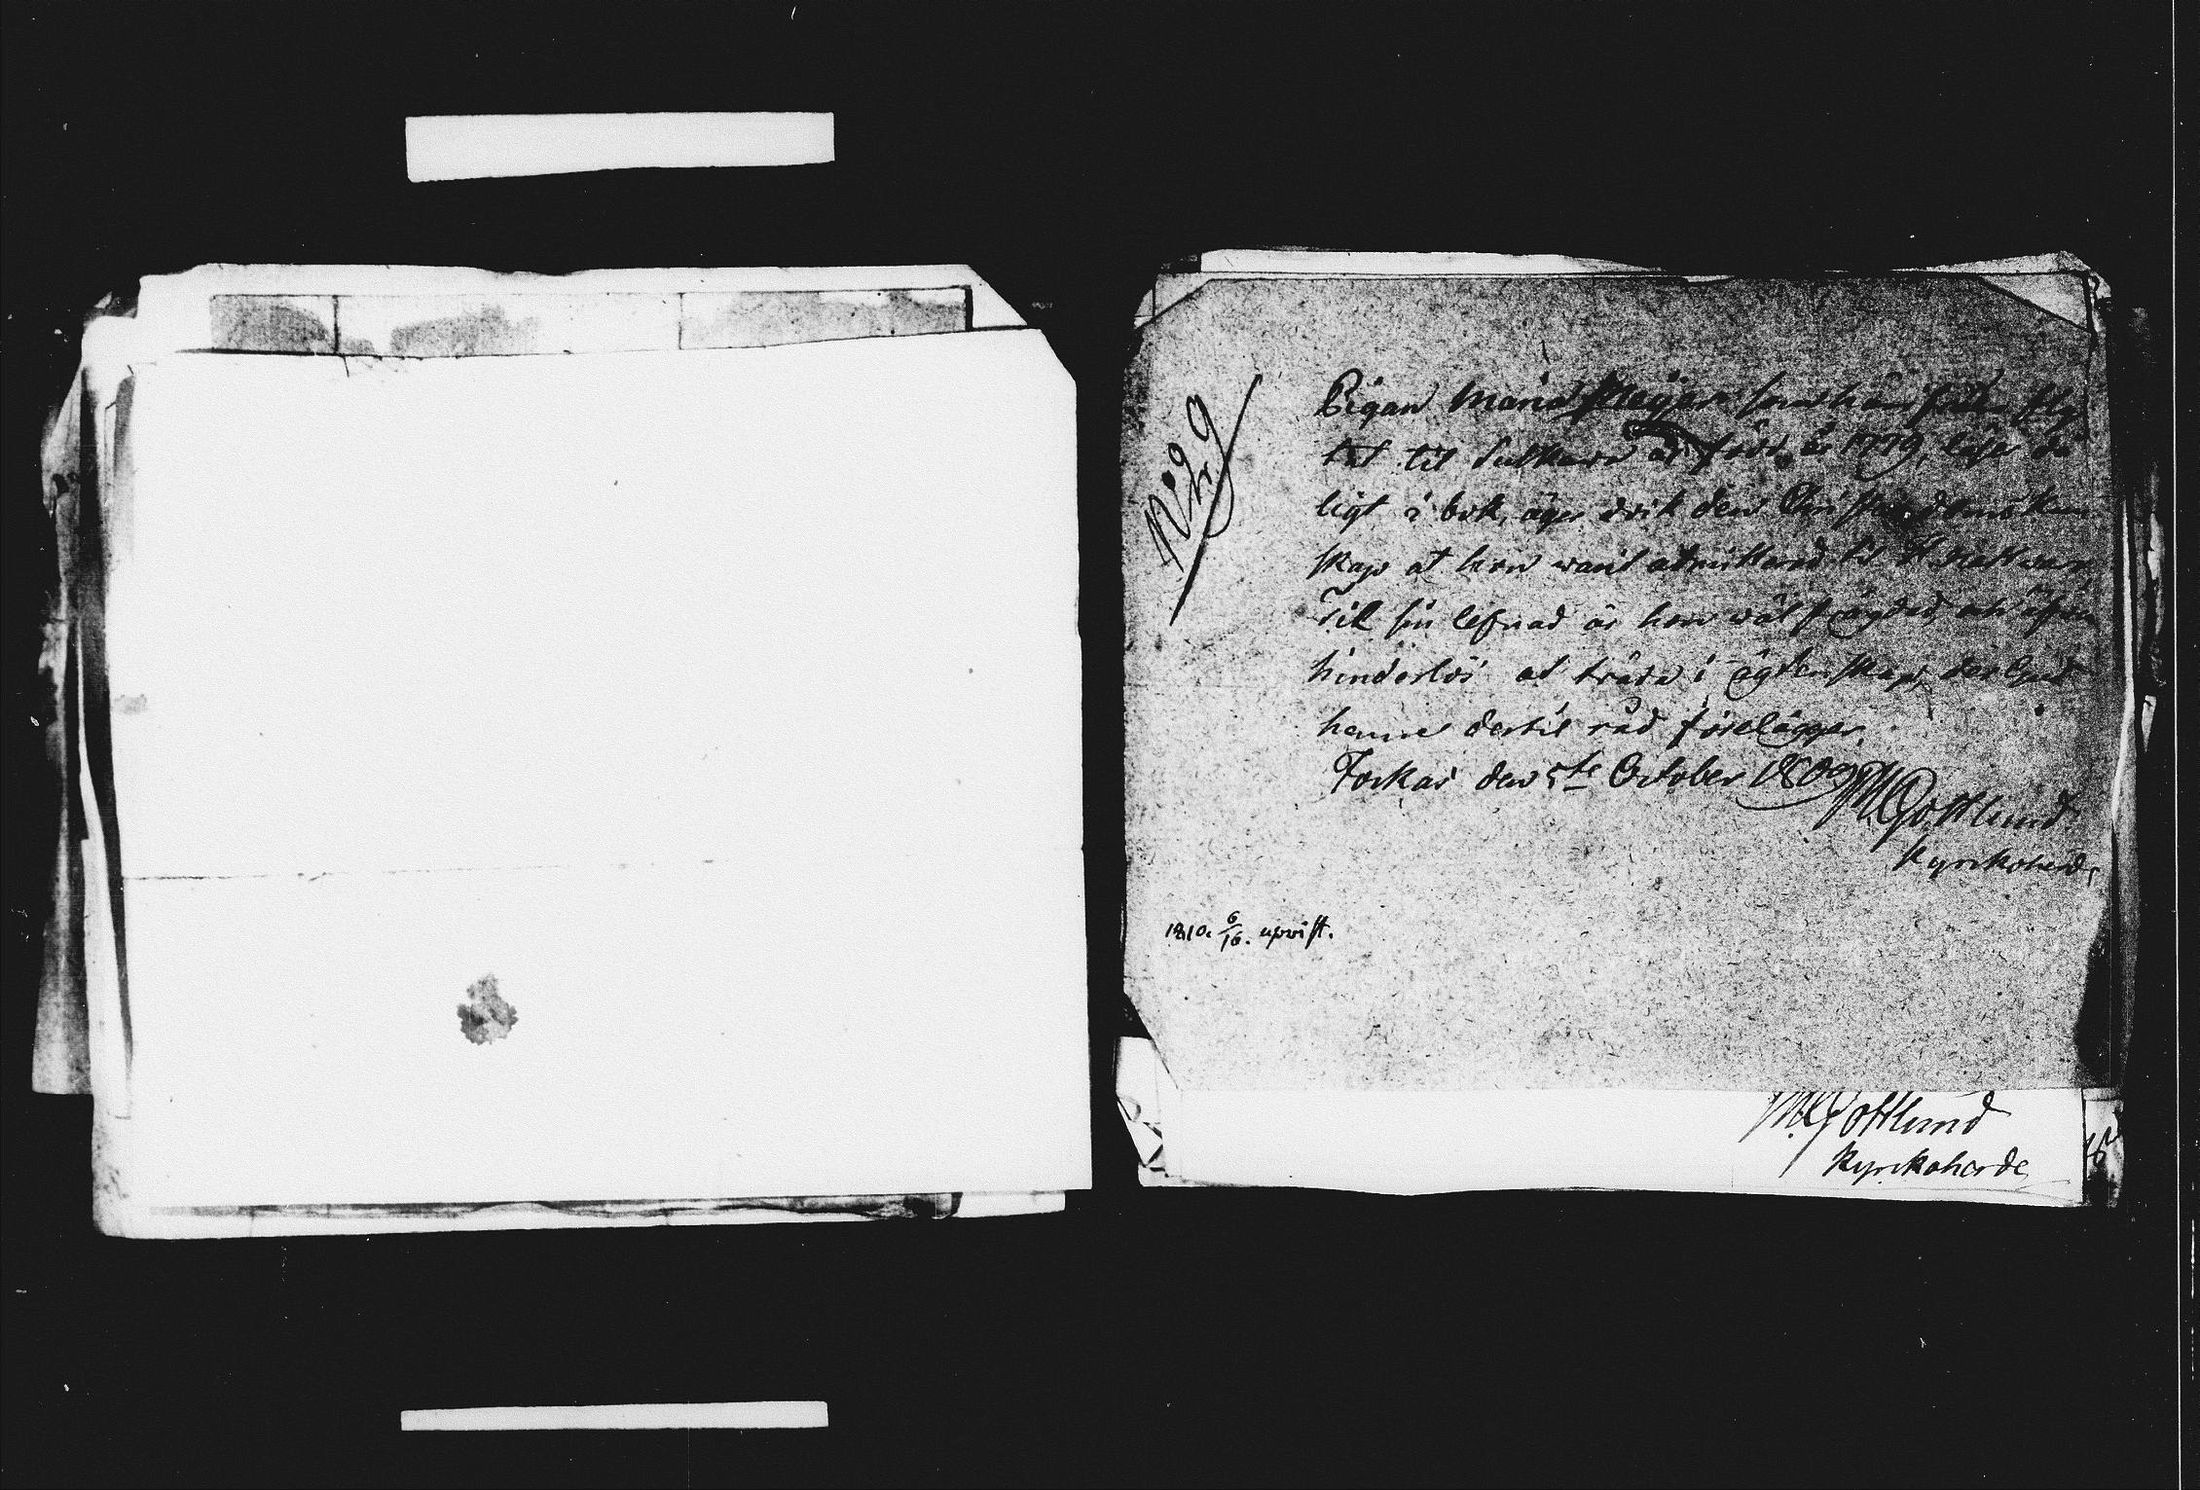 No 29
Pigan Maria härifrån fly
tat til Sulkava är född år 1779, läser be
ligt i bok, äger ock den Christendoms kun
skap at hon varit admitterad til H. Nattvard,
Til sin lefnad är hon väl frägdad, och äfven
hinderlös at träda i ägtenskap, der Gud
henne dertil råd förelägger.
Jockas den 5te October 1809
M Gottlund
Kyrckoherde
1810. 6/16. upvist.
M. Gottlund
Kyrckoherde